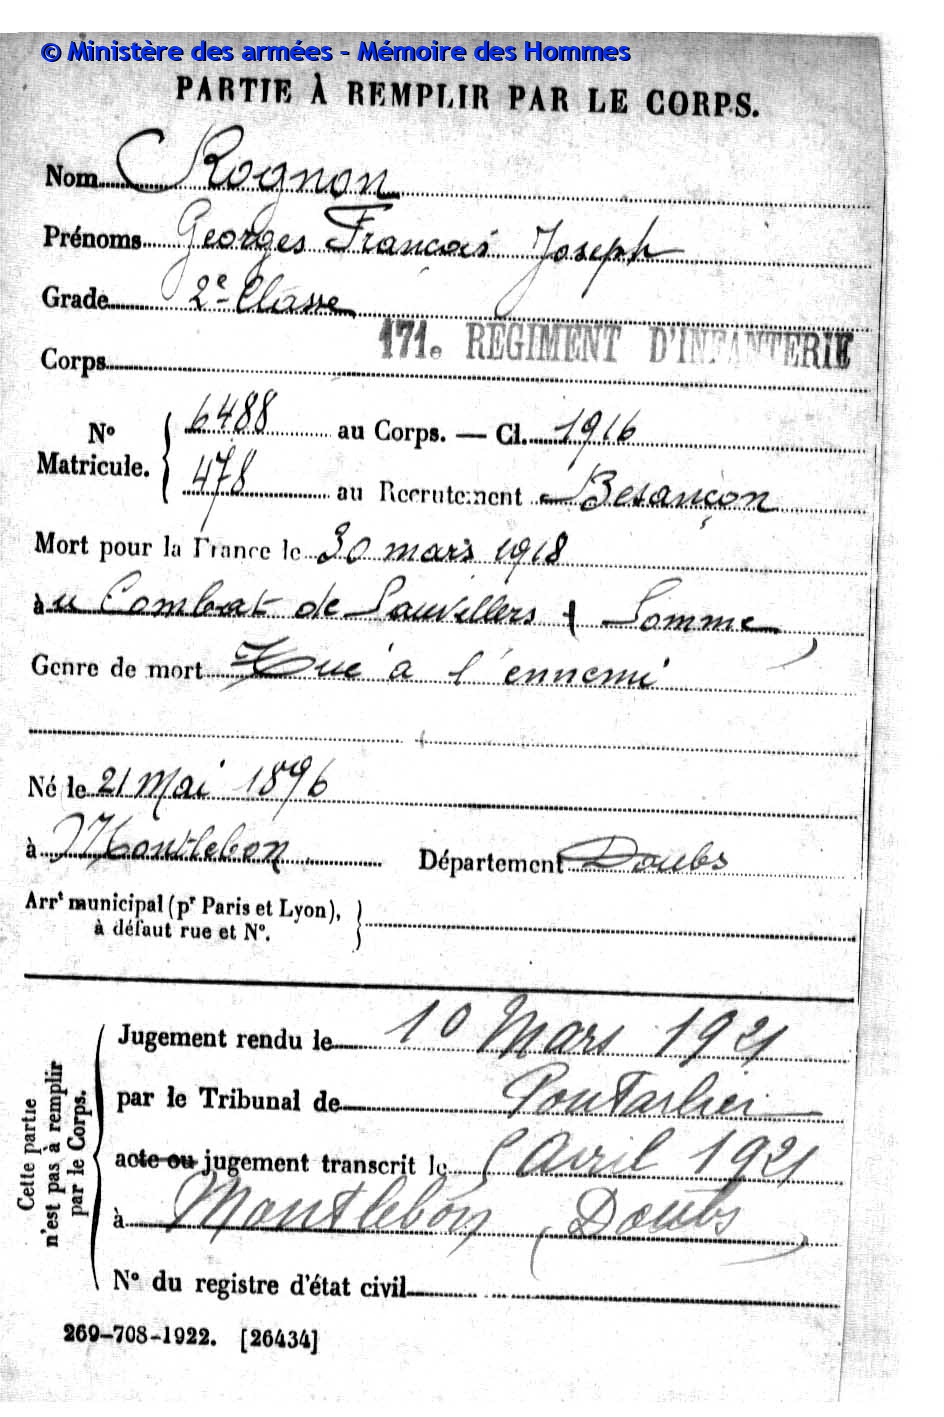 © Ministère des armées - Mémoire des Hommes
PARTIE À REMPLIR PAR LE CORPS.
Nom Rognon
Prénoms Georges François Joseph
Grade 2e Classe
171e REGIMENT D'INFANTERIE
Corps
No Matricule. { 6488 au Corps. — Cl. 1916
478 au Recrutement Besançon
Mort pour la France le 30 mars 1918
au Combat de Sauvillers (Somme)
Genre de mort Tué à l'ennemi
Né le 21 Mai 1896
à Montlebon Département Doubs
Arrt municipal (pr Paris et Lyon), }
à défaut rue et No.
Cette partie
n'est pas à remplir
par le Corps.
Jugement rendu le 10 Mars 1921
par le Tribunal de Pontarlier
acte ou jugement transcrit le 5 Avril 1921
à Montlebon (Doubs)
No du registre d'état civil
269-708-1922. [26434]